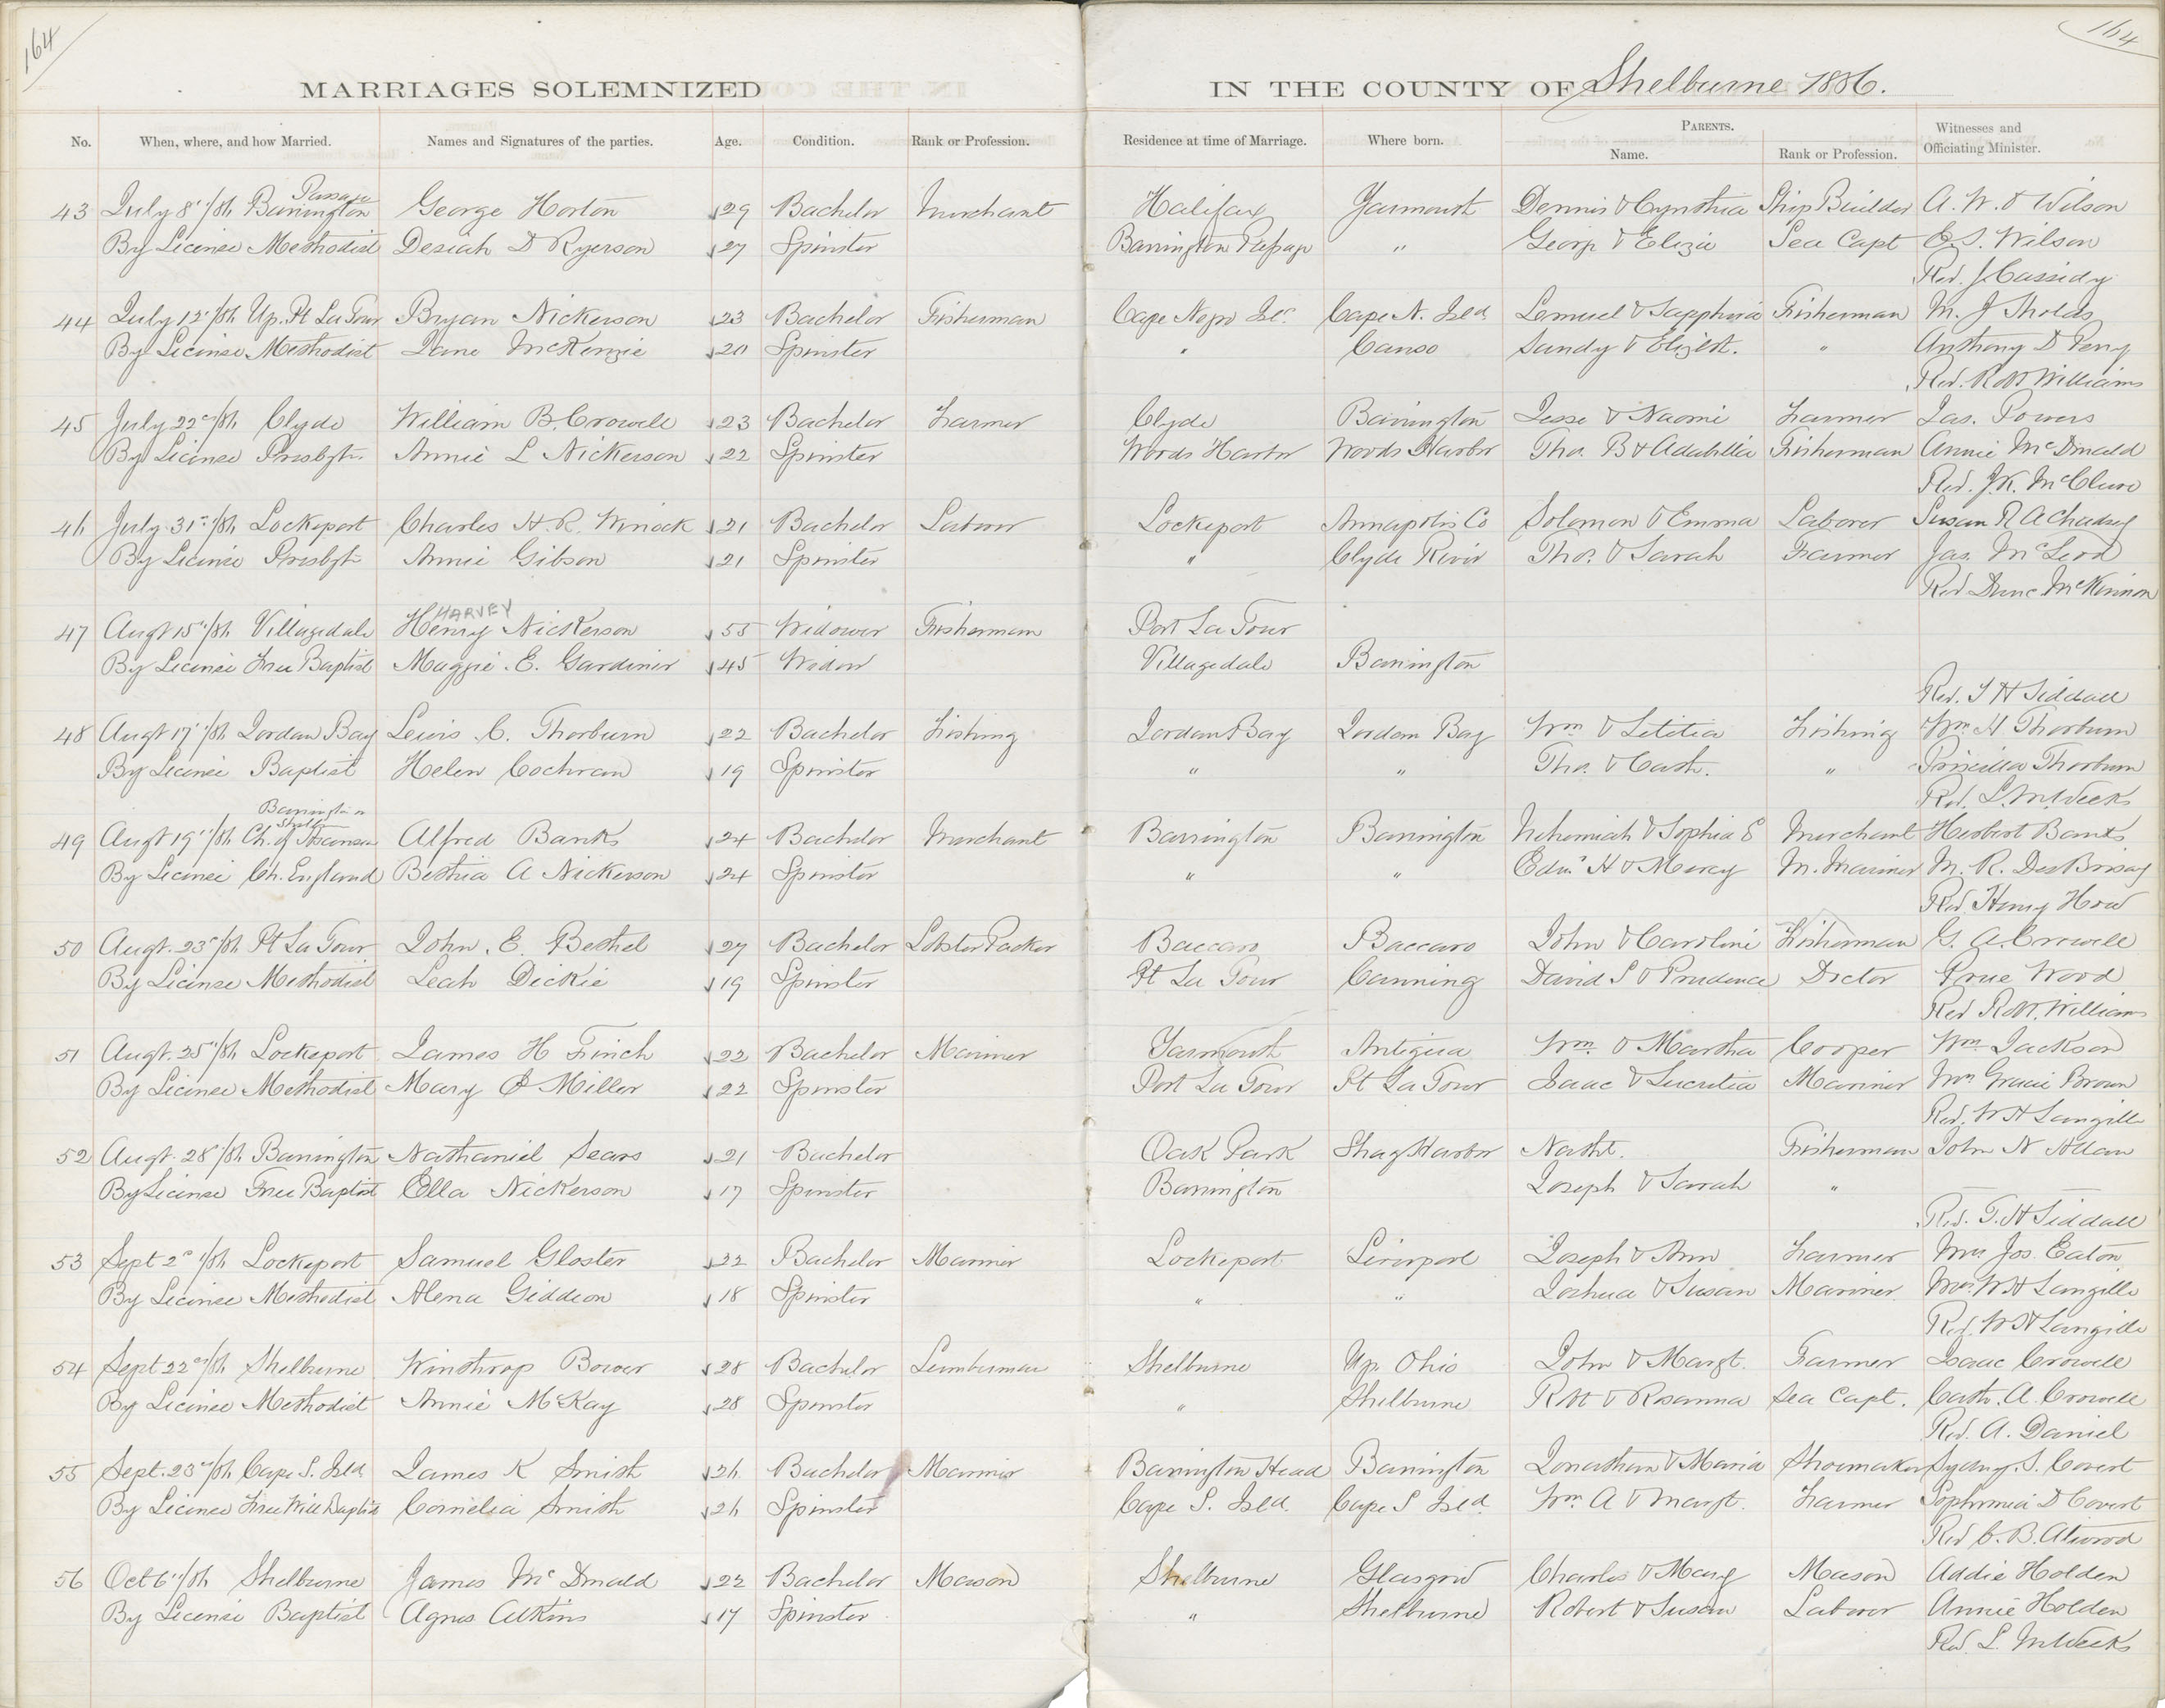 164
164
MARRIAGES SOLEMNIZED IN THE COUNTY OF Shelburne 1886.
No. When, where, and how Married. Names and Signatures of the parties. Age. Condition. Rank or Profession. Residence at time of Marriage. Where born. PARENTS. Name. Rank or Profession. Witnesses and Officiating Minister.
Passage
43 July 8"/86 Barrington George Horton 29 Bachelor Merchant Halifax Yarmouth Dennis & Cynthia Ship Builder A. W. & Wilson
By License Methodist Desiah D Ryerson 27 Spinster Barrington Passage " Georg & Eliza Sea Capt E. S. Wilson
Rev. J Cassidy
44 July 12"/86 Up. Pt La Tour Bryan Nickerson 23 Bachelor Fisherman Cape Negro Isl. Cape N. Isld Lemuel & Sapphira Fisherman M. J
By License Methodist Jane McKenzie 20 Spinster " Canso Sandy & Elizbt. " Anthony D Perry
Rev. Robt Williams
45 July 22nd/86 Clyde William B. Crowell 23 Bachelor Farmer Clyde Barrington Jesse & Naomi Farmer Jas. Powers
By License Presbytn Annie L Nickerson 22 Spinster Woods Harbor Woods Harbor Thos. B & Adabellia Fisherman Annie McDonald
Rev. J. K. McClure
46 July 31st/86 Lockeport Charles H. R. Winock 21 Bachelor Laborer Lockeport Annapolis Co Solomon & Emma Laborer Susan R A Chadsey
By License Presbytn Annie Gibson 21 Spinster " Clyde River Thos. & Sarah Farmer Jas. McLeod
Rev Dunc McKinnon
HARVEY
47 Augt 15"/86 Villagedale Henry Nickerson 55 Widower Fisherman Port La Tour
By License Free Baptist Maggie E. Gardiner 45 Widow Villagedale Barrington
Rev. T H Siddall
48 Augt 17"/86 Jordan Bay Lewis C. Thorburn 22 Bachelor Fishing Jordan Bay Jordan Bay Wm & Letitia Fishing Wm H Thorburn
By License Baptist Helen Cochran 19 Spinster " " Thos. & Cath. " Priscilla Thorburn
Rev. L. M. Weeks
Barrington
49 Augt 19"/86 Ch. of Alfred Banks 24 Bachelor Merchant Barrington Barrington Nehemiah & Sophia E Merchant Herbert Banks
By License Ch. England Bethia A Nickerson 24 Spinster " " Edw. H & Mercy M. Mariner M. R. DesBrisay
Rev. Henry How
50 Augt. 23"/86 Pt La Tour John E. Bethel 27 Bachelor Lobster Packer Baccaro Baccaro John & Caroline Fisherman G. A. Crowell
By License Methodist Leah Dickie 19 Spinster Pt La Tour Canning David S & Prudence Doctor Prue Wood
Rev Robt. Williams
51 Augt. 25"/86 Lockeport James H Finch 22 Bachelor Mariner Yarmouth Antigua Wm. & Martha Cooper Wm Jackson
By License Methodist Mary E Miller 22 Spinster Port La Tour Pt La Tour Isaac & Lucretia Mariner Mrs Gracie Brown
Rev. W H Langille
52 Augt. 28"/86 Barrington Nathaniel Sears 21 Bachelor Oak Park Shag Harbor Nathl. Fisherman John N Allan
By License Free Baptist Ella Nickerson 17 Spinster Barrington Joseph & Sarah "
Rev. T. H Siddall
53 Sept 2nd/86 Lockeport Samuel Gloster 22 Bachelor Mariner Lockeport Liverpool Joseph & Ann Farmer Mrs Jos. Eaton
By License Methodist Alena Giddeon 18 Spinster " " Joshua & Susan Mariner Mrs. W H Langille
Rev. W H Langille
54 Sept 22nd/86 Shelburne Winthrop Bower 28 Bachelor Lumberman Shelburne Up. Ohio John & Margt. Farmer Isaac Crowell
By License Methodist Annie McKay 28 Spinster " Shelburne Robt & Rosanna Sea Capt. Cath. A. Crowell
Rev. A. Daniel
55 Sept. 23rd/86 Cape S. Isld James K Smith 26 Bachelor Mariner Barrington Head Barrington Jonathan & Maria Shoemaker Sydney. S. Covert
By License Free Will Baptist Cornelia Smith 26 Spinster Cape S. Isld. Cape S Isld. Wm A & Margt. Farmer Sophronia D Covert
Rev C. B. Atwood
56 Oct 6"/86 Shelburne James McDonald 22 Bachelor Mason Shelburne Glasgow Charles & Mary Mason Addie Holden
By License Baptist Agnes Atkins 17 Spinster " Shelburne Robert & Susan Laborer Annie Holden
Rev L. M Weeks